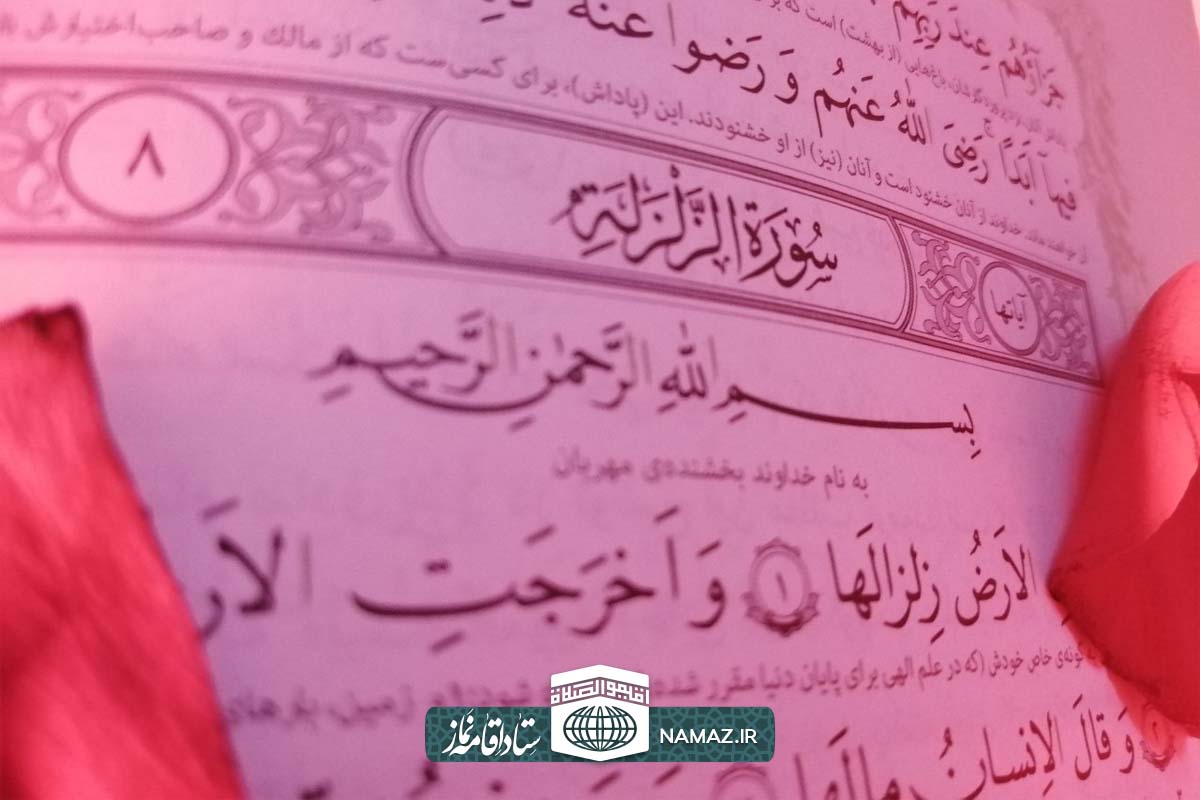 جَزَآؤُهُم عِندَ رَبِّهِم
(از بهشت) است که
فيهآ اَبَدًا رَضِىَ اللّٰهُ عَنهُم وَ رَضوا عَنهُ
خداوند از آنان خشنود است و آنان (نیز) از او خشنودند. این (پاداش)، برای کسی‌ست که از مالک و صاحب‌اختیارش
آیاتها
سُورَةُ الزَّلزَلَةِ
٨
بِسمِ اللّٰهِ الرَّحمٰنِ الرَّحيمِ
به نام خداوند بخشنده‌ی مهربان
الاَرضُ زِلزالَها ١ وَ اَخرَجَتِ الاَر
گونه‌ی خاص خودش (که در علم الهی برای پایان دنیا مقرر شده زمین، بارهای
وَ قالَ الاِنسانُ مالَها
NAMAZ.IR
اقیموا الصلاة
ستاد اقامه نماز